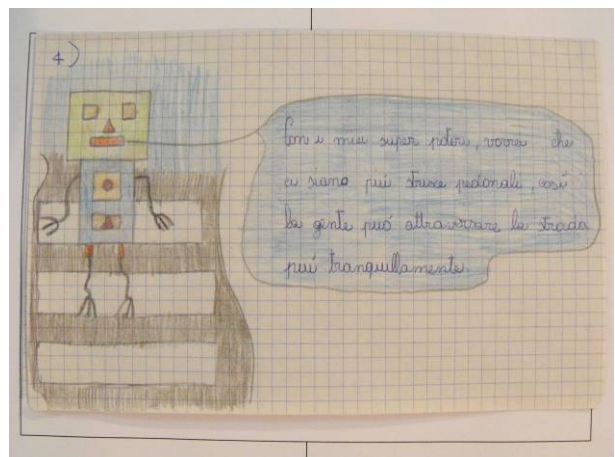 4)
Con i miei super poteri, vorrei che
ci siano più strisce pedonali, così
la gente può attraversare la strada
più tranquillamente